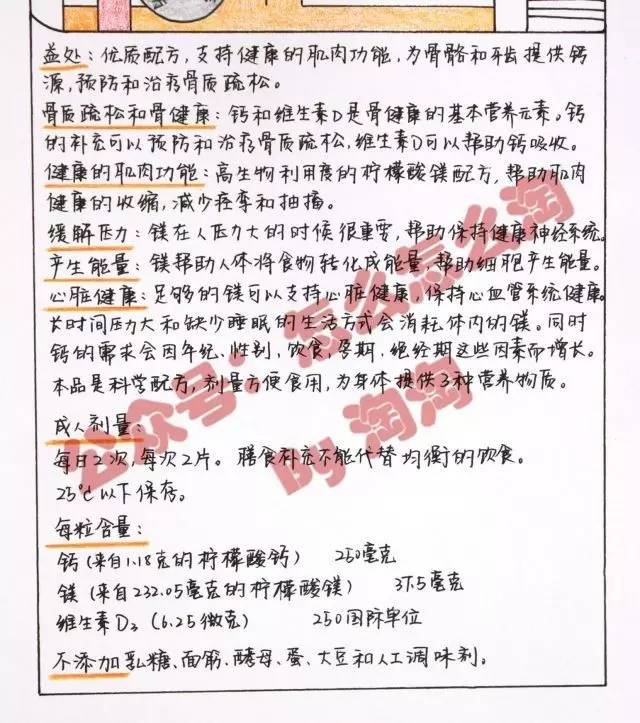 益处：优质配方，支持健康的肌肉功能，为骨骼和牙齿提供钙
源，预防和治疗骨质疏松。
骨质疏松和骨健康：钙和维生素D是骨健康的基本营养元素。钙
的补充可以预防和治疗骨质疏松，维生素D可以帮助钙吸收。
健康的肌肉功能：高生物利用度的柠檬酸镁配方，帮助肌肉
健康的收缩，减少痉挛和抽搐。
缓解压力：镁在人压力大的时候很重要，帮助保持健康神经系统。
产生能量：镁帮助人体将食物转化成能量，帮助细胞产生能量。
心脏健康：足够的镁可以支持心脏健康，保持心血管系统健康。
长时间压力大和缺少睡眠的生活方式会消耗体内的镁。同时
钙的需求会因年纪、性别，饮食，孕期，绝经期这些因素而增长。
本品是科学配方，剂量方便食用，为身体提供3种营养物质。
成人剂量：
每日2次，每次2片。膳食补充不能代替均衡的饮食。
25℃以下保存。
每粒含量：
钙（来自1.18克的柠檬酸钙） 250毫克
镁（来自232.05毫克的柠檬酸镁） 37.5毫克
维生素D3（6.25微克） 250国际单位
不添加乳糖、面筋、酵母、蛋、大豆和人工调味剂。
公众号：怎么怎么淘
By 淘淘